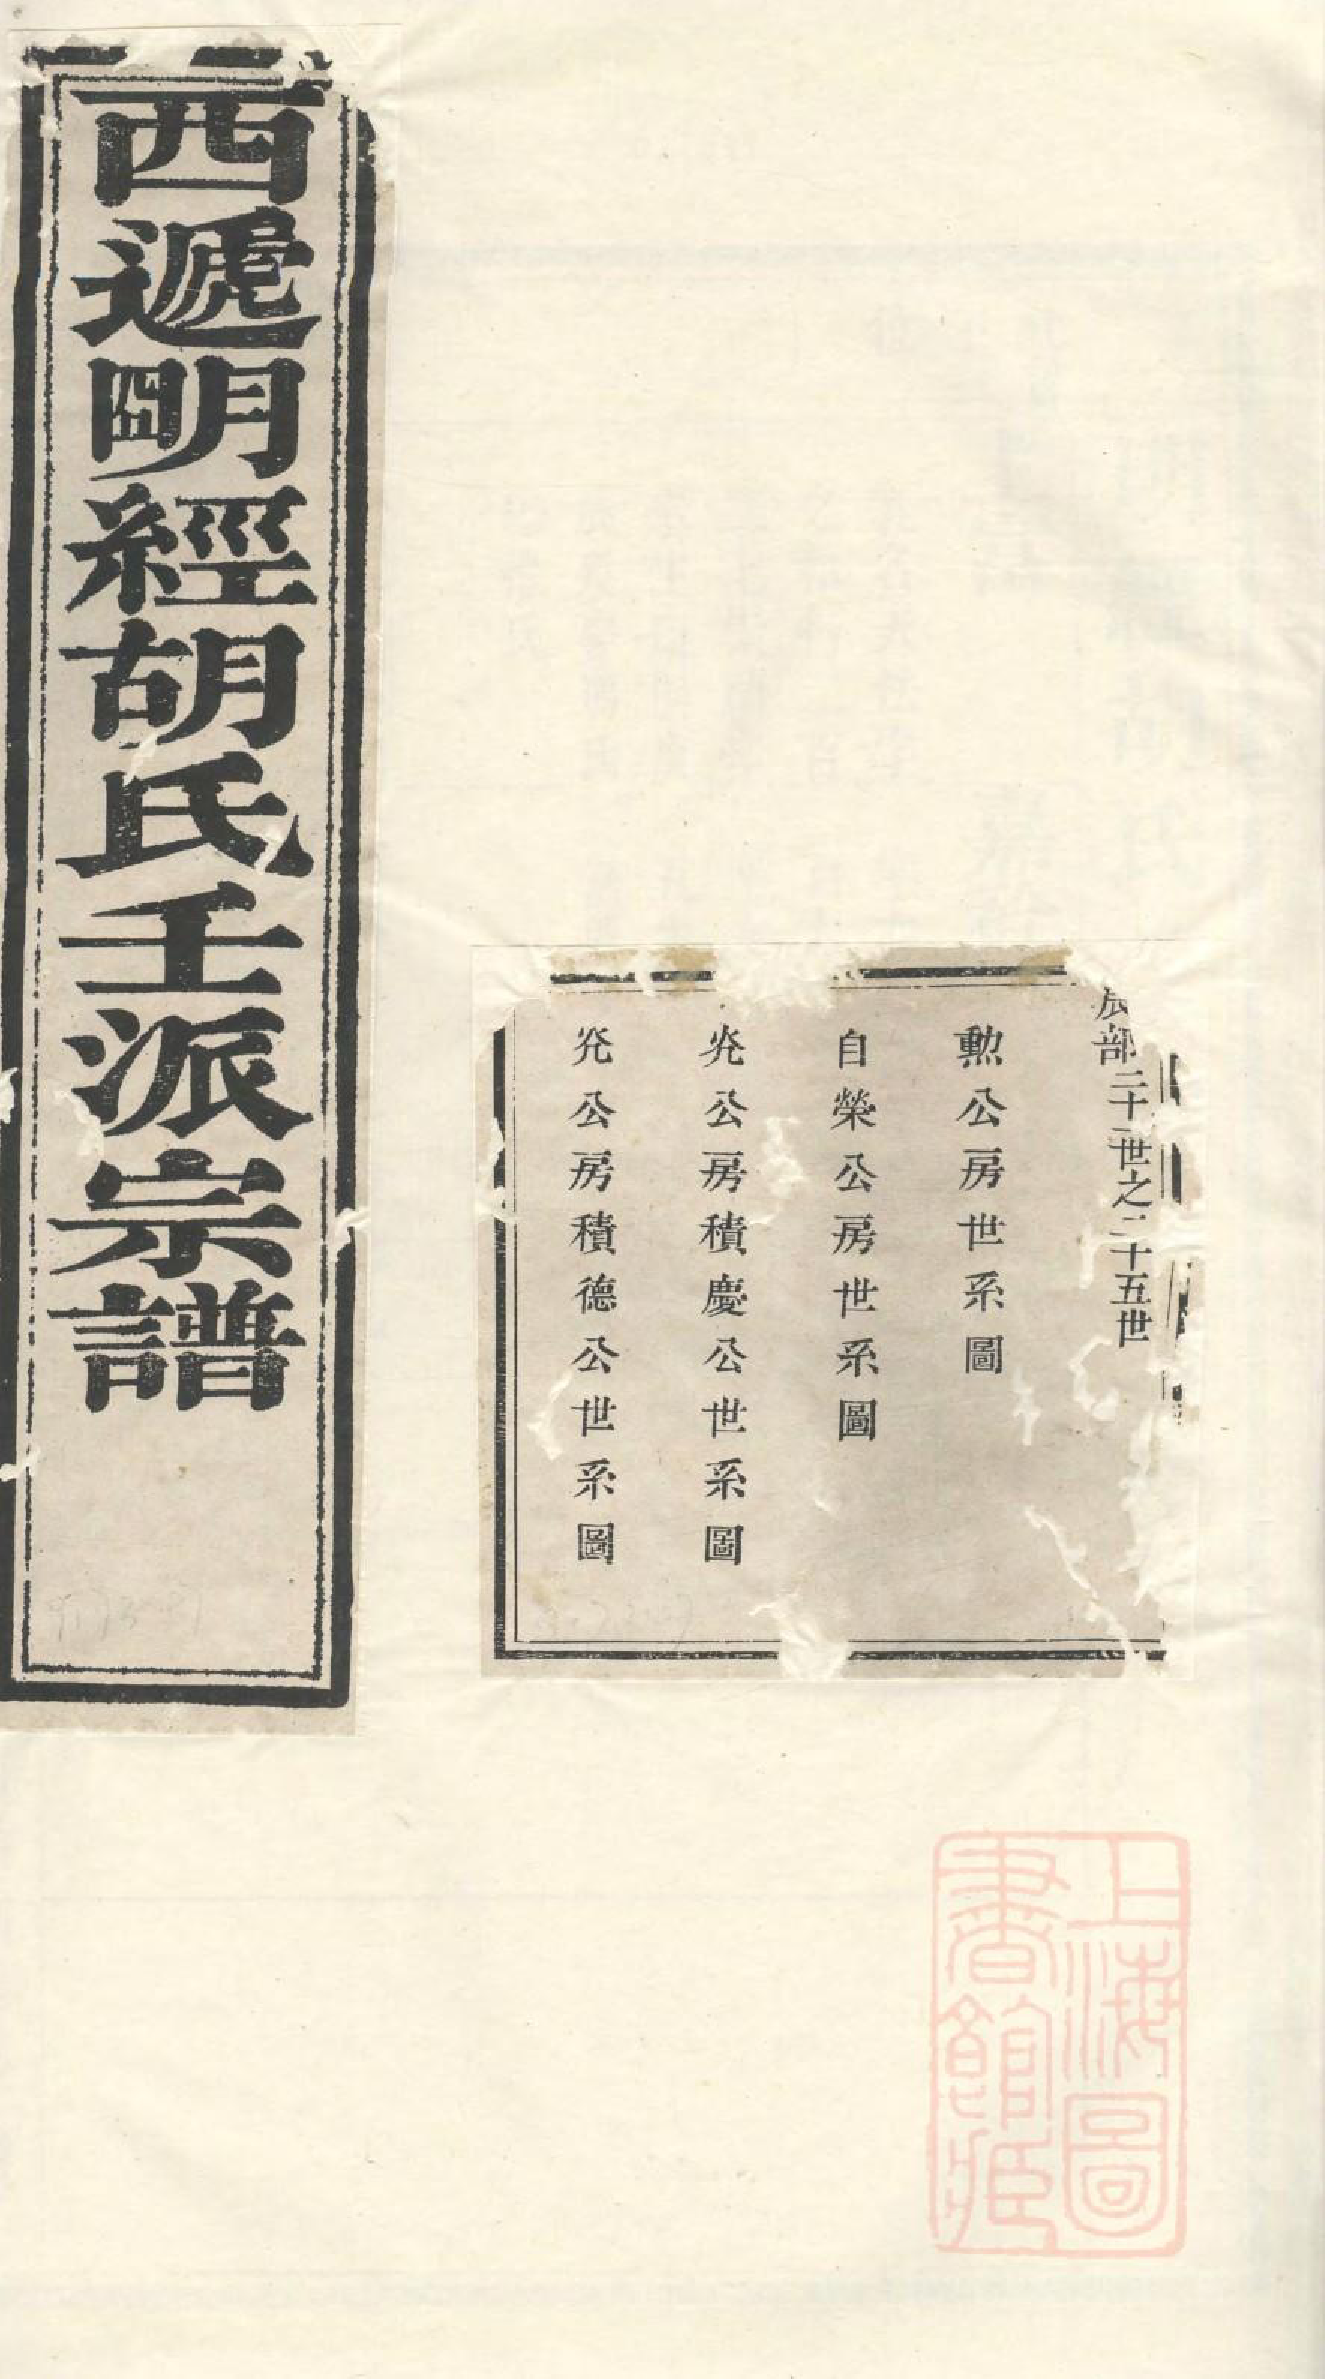 西遞明經胡氏壬派宗譜
辰部二十一世之二十五世
勲公房世系圖
自榮公房世系圖
灮公房積慶公世系圖
灮公房積德公世系圖
上海圖
書館藏